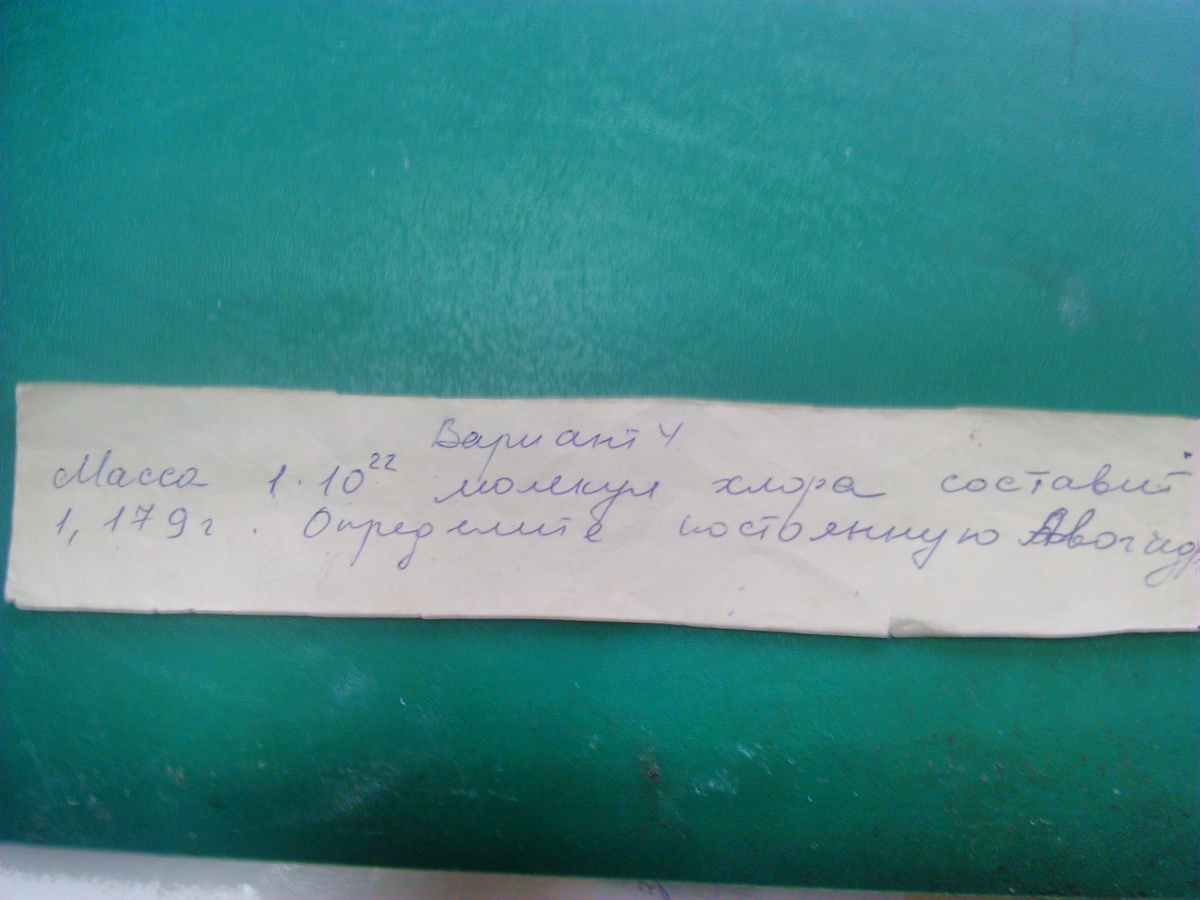 Вариант 4
Масса 1·10²² молекул хлора составит
1,179г. Определите постоянную Авогад